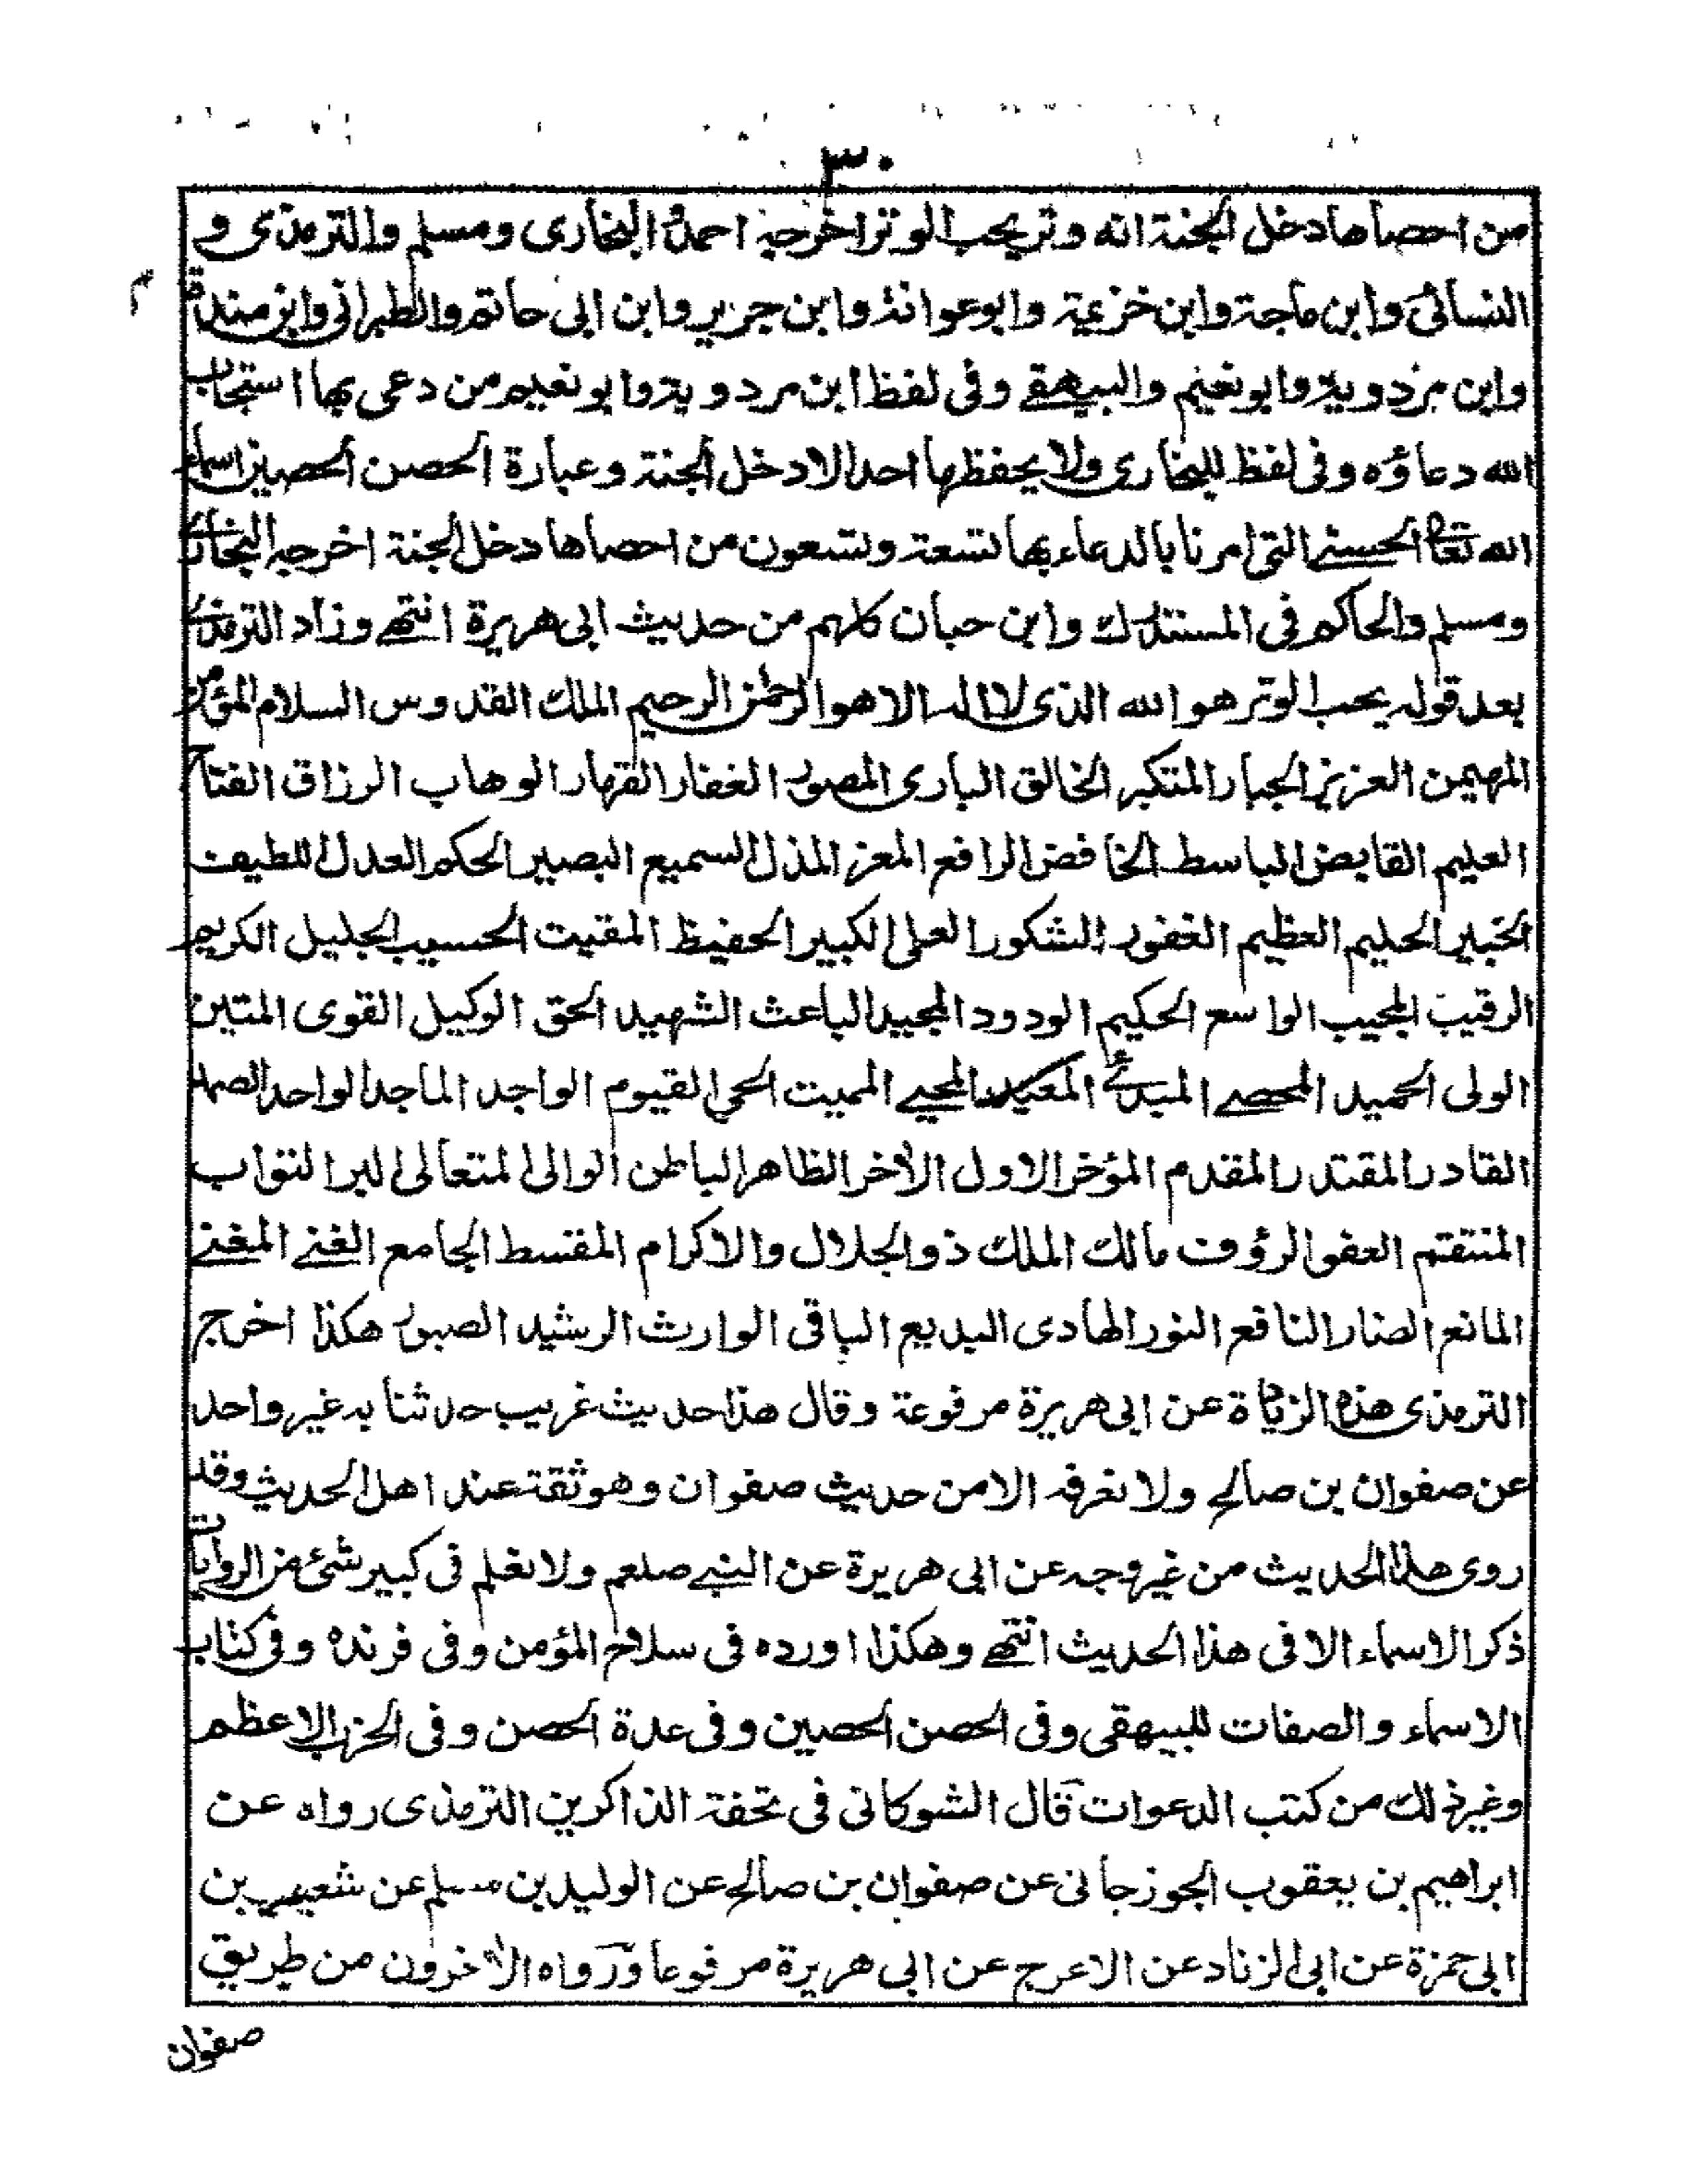 ٣٠
من احصاها دخل الجنة انه وتر يحب الوتر اخرجه احمد والبخارى ومسلم والترمذى و
النسائى وابن ماجة وابن خزيمة وابو عوانة وابن جرير وابن ابى حاتم والطبرانى وابن مندة
وابن مردويه وابو نعيم والبيهقے وفى لفظ ابن مردويه وابو نعيم من دعى بها استجاب
الله دعاؤه وفى لفظ للبخارى ولا يحفظها احد الا دخل الجنة وعبارة الحصن الحصين اسماء
الله تعالى الحسنے التى امرنا بالدعاء بها تسعة وتسعون من احصاها دخل الجنة اخرجه البخارى
ومسلم والحاكم فى المستدرك وابن حبان كلهم من حديث ابى هريرة انتهے وزاد الترمذى
بعد قوله يحب الوتر هو الله الذى لا اله الا هو الرحمن الرحيم الملك القدوس السلام المؤمن
المهيمن العزيز الجبار المتكبر الخالق البارى المصور الغفار القهار الوهاب الرزاق الفتاح
العليم القابض الباسط الخافض الرافع المعز المذل السميع البصير الحكم العدل اللطيف
الخبير الحليم العظيم الغفور الشكور العلى الكبير الحفيظ المقيت الحسيب الجليل الكريم
الرقيب المجيب الواسع الحكيم الودود المجيد الباعث الشهيد الحق الوكيل القوى المتين
الولى الحميد المحصے المبدئ المعيد المحيے المميت الحي القيوم الواجد الماجد الواحد الصمد
القادر المقتدر المقدم المؤخر الاول الآخر الظاهر الباطن الوالى المتعالى البر التواب
المنتقم العفو الرؤوف مالك الملك ذو الجلال والاكرام المقسط الجامع الغنے المغنے
المانع الضار النافع النور الهادى البديع الباقى الوارث الرشيد الصبور هكذا اخرج
الترمذى هذه الزيادة عن ابى هريرة مرفوعة وقال هذا حديث غريب حدثنا به غير واحد
عن صفوان بن صالح ولا نعرفه الا من حديث صفوان وهو ثقة عند اهل الحديث وقد
روى هذا الحديث من غير وجه عن ابى هريرة عن النبے صلعم ولا نعلم فى كبير شئ من الروايات
ذكر الاسماء الا فى هذا الحديث انتهے وهكذا اورده فى سلاح المؤمن وفى فرنده وفى كتاب
الاسماء والصفات للبيهقى وفى الحصن الحصين وفى عدة الحصن وفى الحزب الاعظم
وغير ذلك من كتب الدعوات قال الشوكانى فى تحفة الذاكرين الترمذى رواه عن
ابراهيم بن يعقوب الجوزجانى عن صفوان بن صالح عن الوليد بن مسلم عن شعيب بن
ابى حمزة عن ابى الزناد عن الاعرج عن ابى هريرة مرفوعا ورواه الآخرون من طريق
صفوان